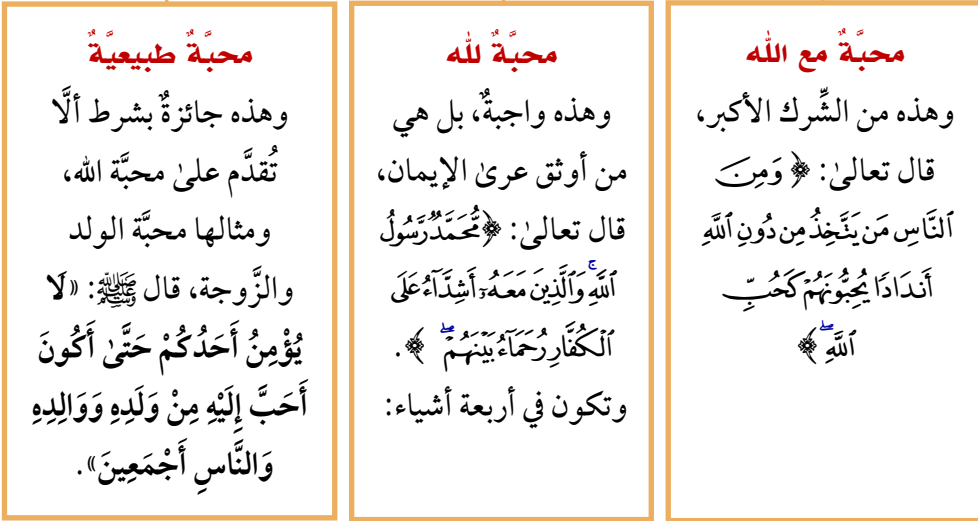 محبَّةٌ مع الله
وهذه من الشِّرك الأكبر،
قال تعالىٰ: ﴿ وَمِنَ
ٱلنَّاسِ مَن يَتَّخِذُ مِن دُونِ ٱللَّهِ
أَندَادًا يُحِبُّونَهُمۡ كَحُبِّ
ٱللَّهِۖ ﴾
محبَّةٌ لله
وهذه واجبةٌ، بل هي
من أوثق عرىٰ الإيمان،
قال تعالىٰ: ﴿مُّحَمَّدٞ رَّسُولُ
ٱللَّهِۚ وَٱلَّذِينَ مَعَهُۥٓ أَشِدَّآءُ عَلَى
ٱلۡكُفَّارِ رُحَمَآءُ بَيۡنَهُمۡۖ ﴾.
وتكون في أربعة أشياء:
محبَّةٌ طبيعيَّةٌ
وهذه جائزةٌ بشرط ألَّا
تُقدَّم علىٰ محبَّة الله،
ومثالها محبَّة الولد
والزَّوجة، قال ﷺ: «لَا
يُؤْمِنُ أَحَدُكُمْ حَتَّىٰ أَكُونَ
أَحَبَّ إِلَيْهِ مِنْ وَلَدِهِ وَوَالِدِهِ
وَالنَّاسِ أَجْمَعِينَ».